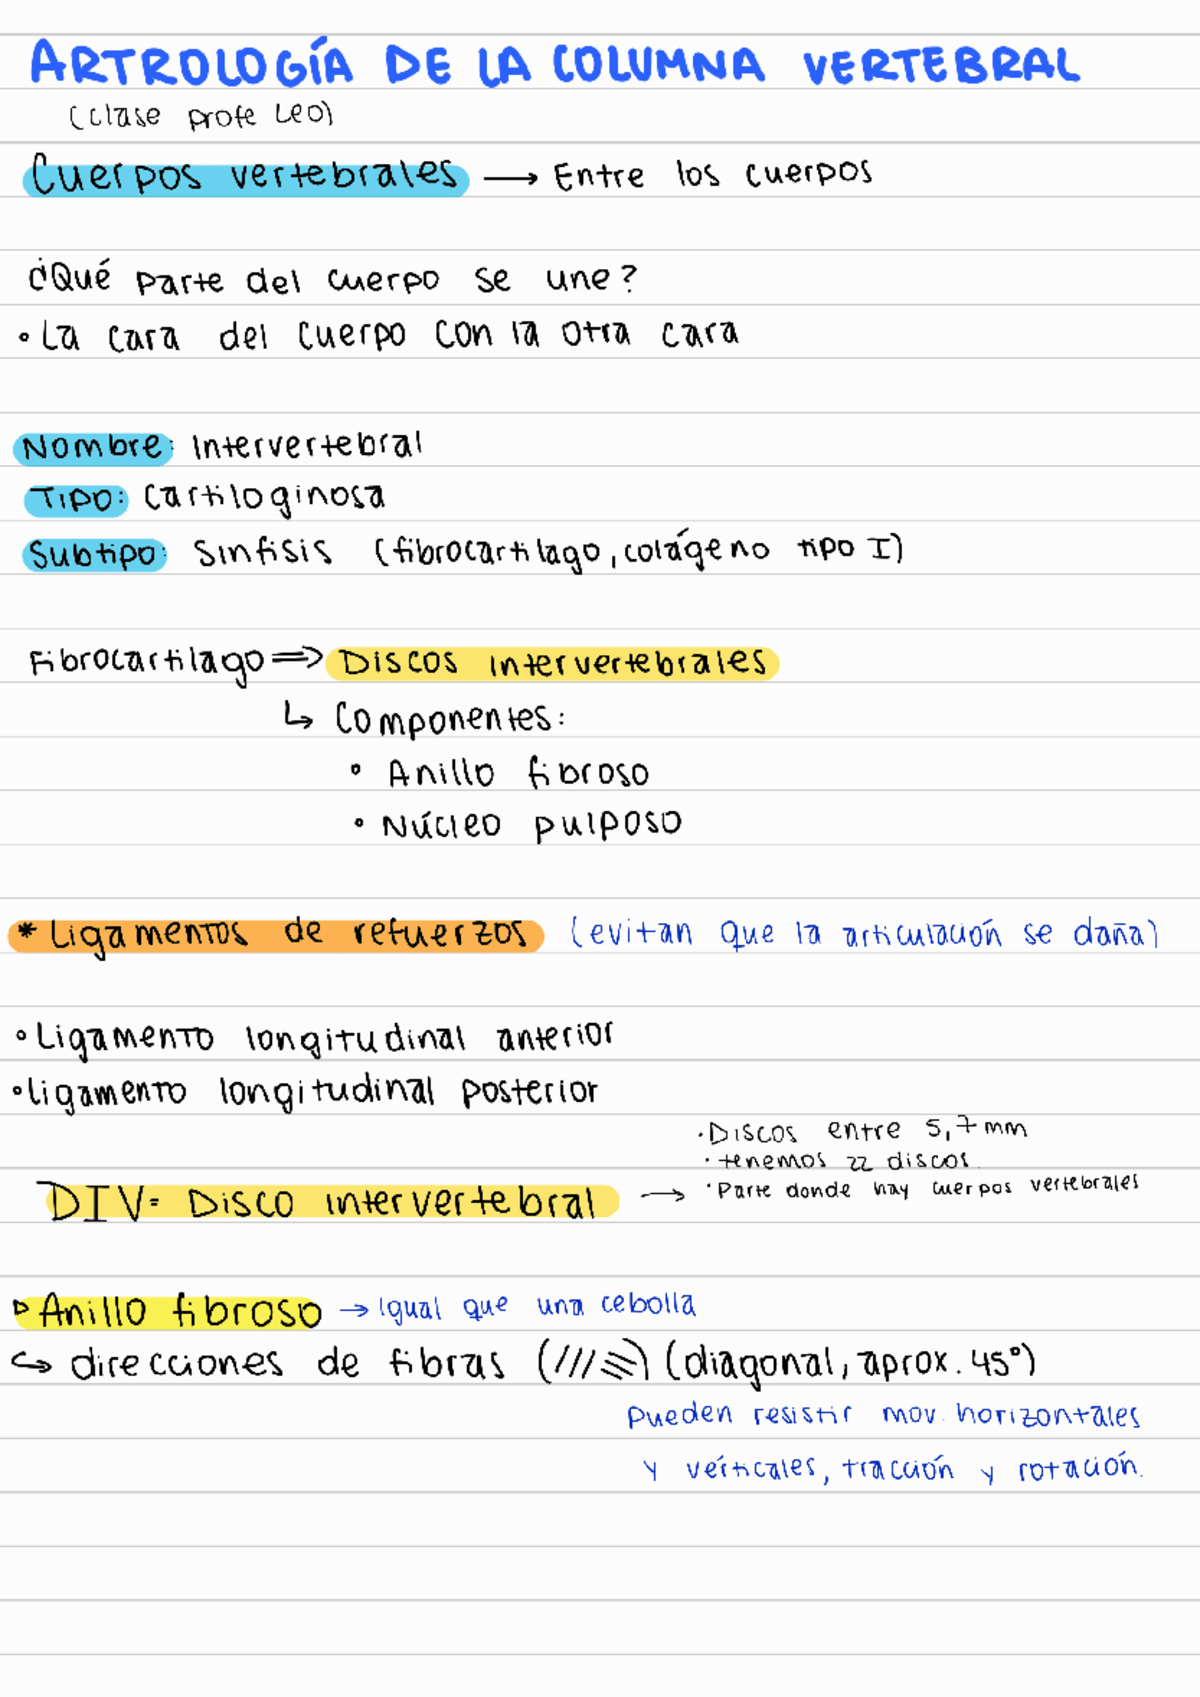 ARTROLOGÍA DE LA COLUMNA VERTEBRAL
(clase profe Leo)
Cuerpos vertebrales → Entre los cuerpos
¿Qué parte del cuerpo se une?
• La cara del cuerpo con la otra cara
Nombre: Intervertebral
Tipo: Cartiloginosa
Subtipo: Sinfisis (fibrocartilago, colágeno tipo I)
Fibrocartilago ⇒ Discos intervertebrales
↳ Componentes:
• Anillo fibroso
• Núcleo pulposo
* Ligamentos de refuerzos (evitan que la articulación se daña)
• Ligamento longitudinal anterior
• ligamento longitudinal posterior
· Discos entre 5,7mm
· tenemos 22 discos.
DIV= Disco intervertebral → · Parte donde hay cuerpos vertebrales
▷ Anillo fibroso → Igual que una cebolla
↪ direcciones de fibras (///⋚) (diagonal, aprox. 45°)
Pueden resistir mov. horizontales
y vérticales, tracción y rotación.